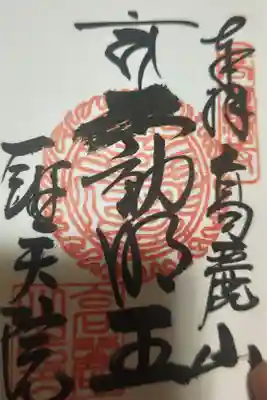 奉拝 高麗山
不動明王
聖天院